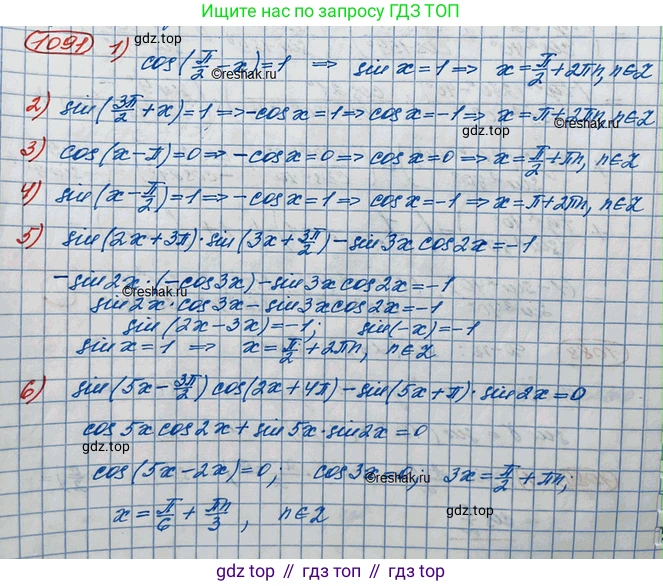 Ищите нас по запросу ГДЗ ТОП
1091 1) cos(π/2 - x) = 1 => sin x = 1 => x = π/2 + 2πn, n∈Z
gdz.top
©reshak.ru
2) sin(3π/2 + x) = 1 => -cos x = 1 => cos x = -1 => x = π + 2πn, n∈Z
gdz.top
3) cos(x - π) = 0 => -cos x = 0 => cos x = 0 => x = π/2 + πn, n∈Z
©reshak.ru
4) sin(x - π/2) = 1 => -cos x = 1 => cos x = -1 => x = π + 2πn, n∈Z
5) sin(2x + 3π)·sin(3x + 3π/2) - sin 3x cos 2x = -1
-sin 2x·(-cos 3x) - sin 3x cos 2x = -1
©reshak.ru
sin 2x·cos 3x - sin 3x cos 2x = -1
sin(2x - 3x) = -1; sin(-x) = -1
sin x = 1 => x = π/2 + 2πn, n∈Z
6) sin(5x - 3π/2) cos(2x + 4π) - sin(5x + π)·sin 2x = 0
cos 5x cos 2x + sin 5x·sin 2x = 0
gdz.top
cos(5x - 2x) = 0; cos 3x = 0; 3x = π/2 + πn;
©reshak.ru
x = π/6 + πn/3, n∈Z
gdz.top
gdz.top // гдз.топ // gdz.top